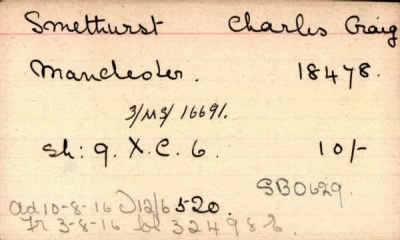 Smethurst Charles Craig
Manchester. 18478.
3/MS/16691.
Sh: 9. X. C. 6. 10/-
SB0629.
ad 10-8-16 12/6 520.
Fr 3-8-16 bl 324986